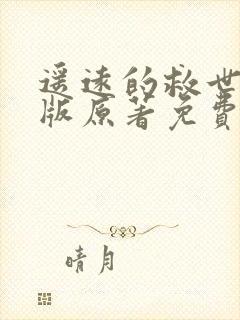 遥远的救世
版原著免費
晴月